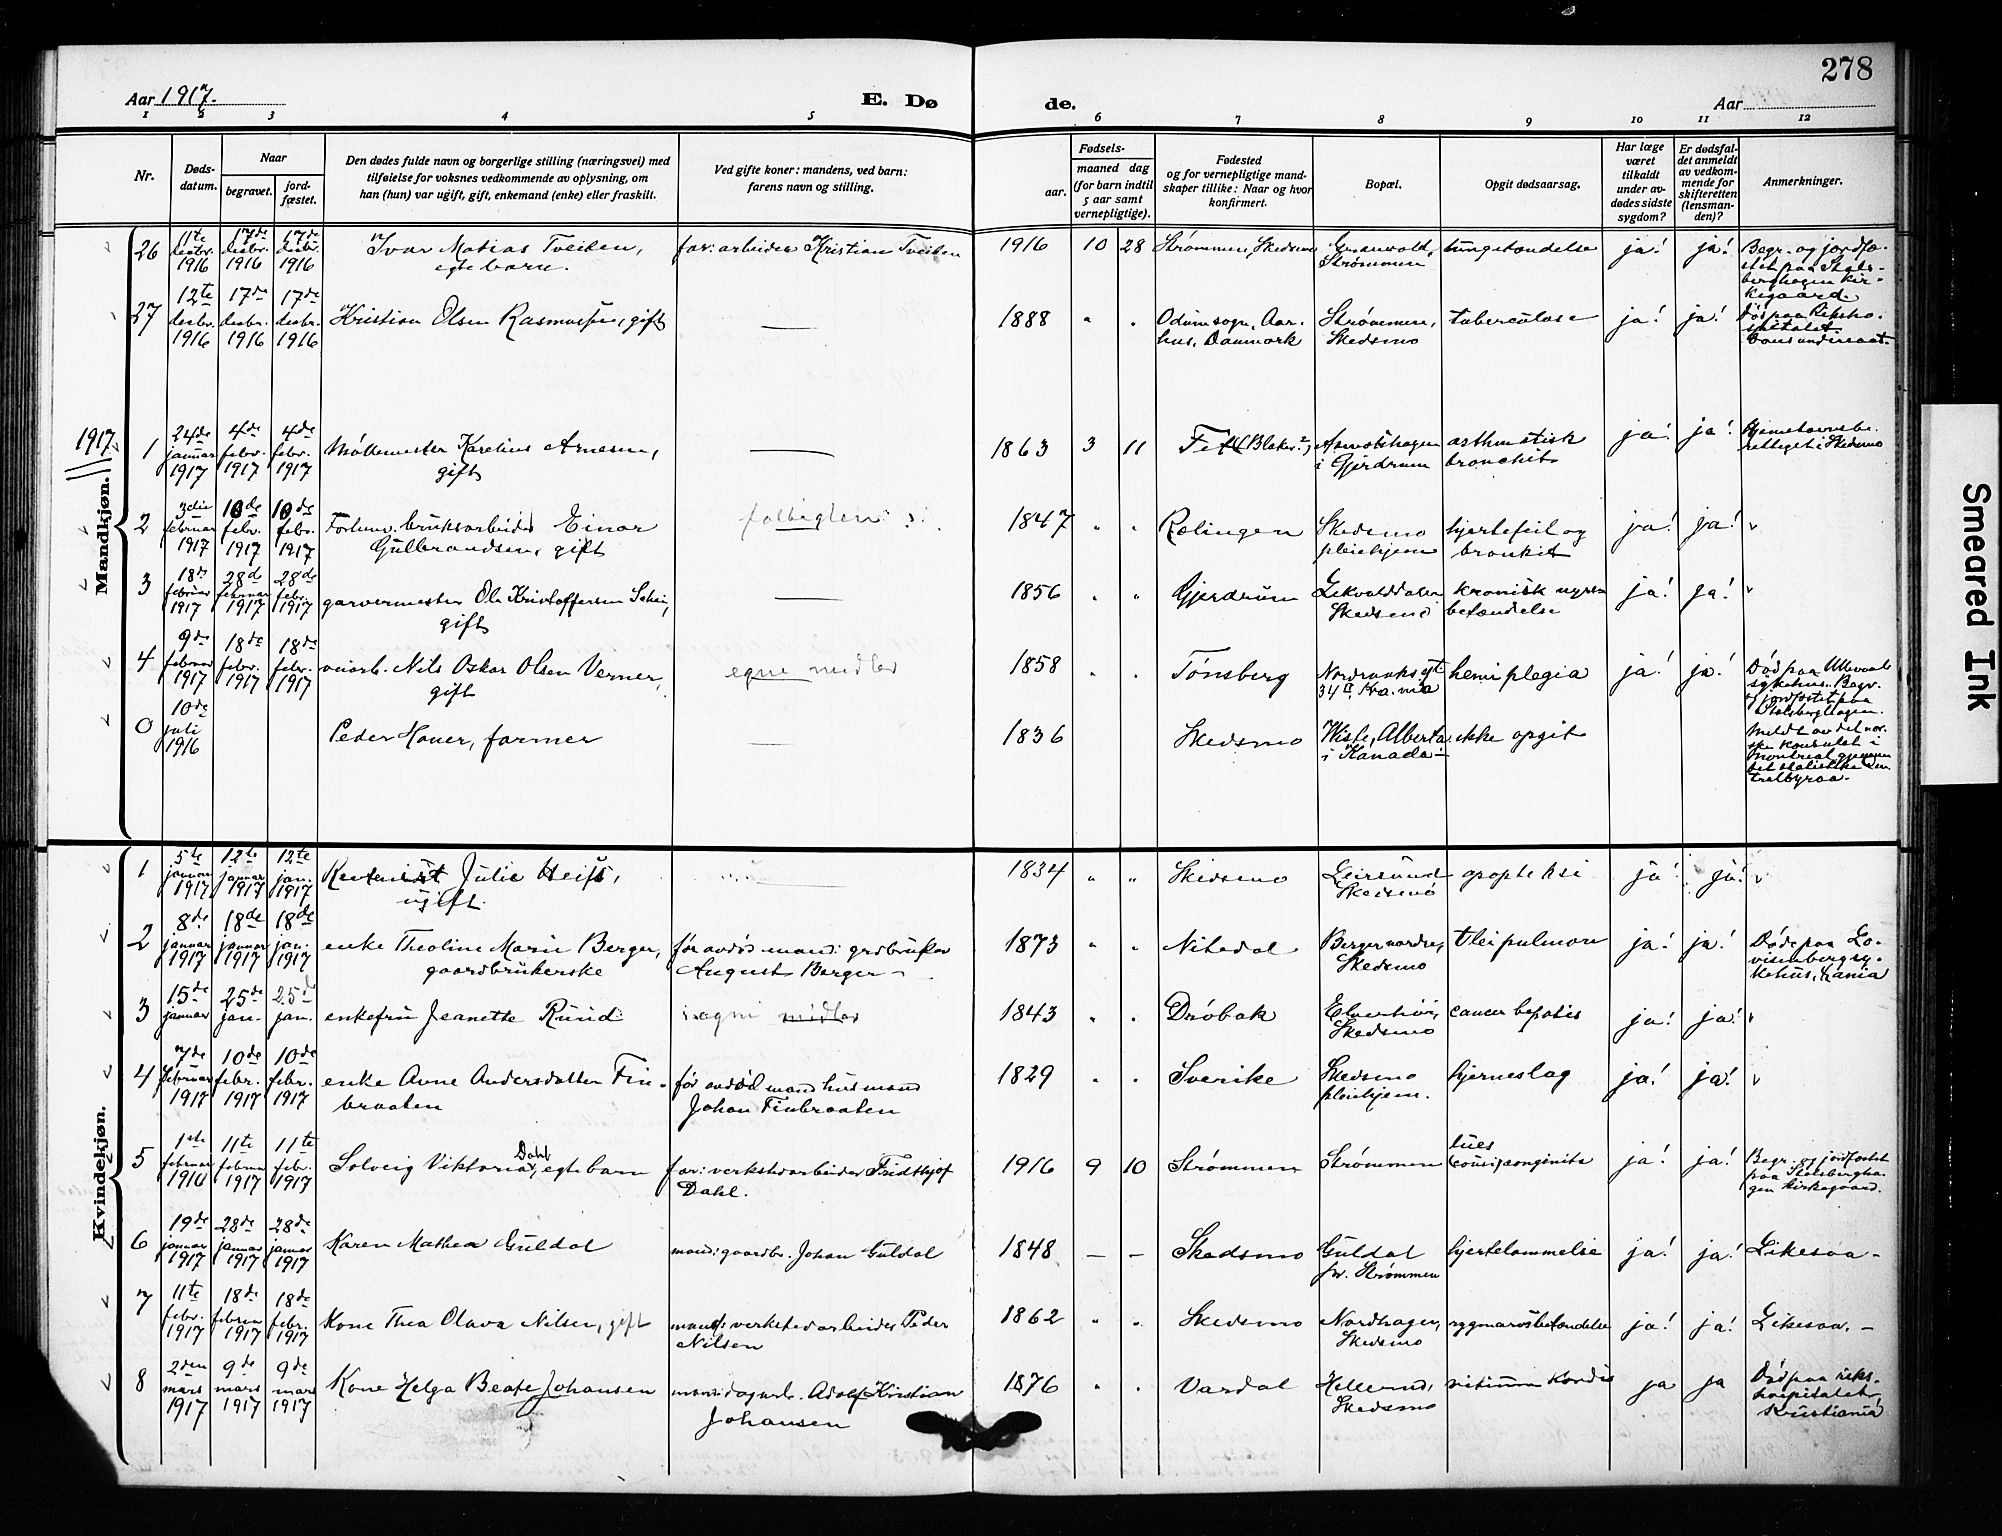 278
Aar 1917.
E. Dø
de.
Aar
1 2 3 4 5 6 7 8 9 10 11 12
Nr.
Døds-
datum.
Naar
begravet.
jord-
fæstet.
Den dødes fulde navn og borgerlige stilling (næringsvei) med
tilføielse for voksnes vedkommende av oplysning, om
han (hun) var ugift, gift, enkemand (enke) eller fraskilt.
Ved gifte koner: mandens, ved barn:
farens navn og stilling.
Fødsels-
aar.
maaned dag
(for barn indtil
5 aar samt
vernepligtige).
Fødested
og for vernepligtige mand-
skaper tillike: Naar og hvor
konfirmert.
Bopæl.
Opgit dødsaarsag.
Har læge
været
tilkaldt
under av-
dødes sidste
sygdom?
Er dødsfal-
det anmeldt
av vedkom-
mende for
skifteretten
(lensman-
den)?
Anmerkninger.
Mandkjøn.
26 11te desbr. 1916 17de desbr. 1916 17de desbr. 1916 Ivar Matias Tveiten, far: arbeider Kristian Tveiten 1916 10 28 Strømmen, Skedsmo Strømmen lungebetændelse ja! ja! Begr. og jordfæ-
egte barn.
stet paa Stals-
berghagen kir-
kegaard.
27 12te desbr. 1916 17de desbr. 1916 17de desbr. 1916 Kristian Olsen Rasmussen, gift — 1888 " " Odum sogn, Aar- Strømmen, tuberculose ja! ja! Død paa Riksho-
hus, Danmark Skedsmo
spitalet
1917
1 24de januar 1917 4de febr. 1917 4de febr. 1917 Møllemester Karelius Arnesen, — 1863 3 11 Fet (Blaker?) asthmatisk ja! ja! Hjemstavnsbe-
gift i Gjerdrum bronchit rettiget i Skedsmo
2 3die februar 1917 10de febr. 1917 10de febr. 1917 Forhenv. bruksarbeider Einar 1847 " " Rælingen Skedsmo hjertefeil og ja! ja! "
Gulbrandsen, gift pleiehjem bronkit
3 18de februar 1917 28de februar 1917 28de febr. 1917 garvermester Ole Kristoffersen — 1856 " " Gjerdrum Skedsmo kronisk nyre- ja! ja! "
gift betændelse
4 9de februar 1917 18de febr. 1917 18de febr. 1917 veiarb. Nils Oskar Olsen Verner, egne midler 1858 " " Tønsberg 34 hemiplegia ja! ja! Død paa Ullevaal
gift
sykehus. Begr.
og jordfæstet paa
Stalsberghagen.
0 10de juli 1916 Peder Hauer, farmer — 1836 Skedsmo Wiste, Alberta ikke opgit Meldt av det nor-
i Kanada
ske konsulat i
Montreal gjennem
det statistiske cen-
tralbyraa.
Kvindekjøn.
1 5te januar 1917 12te januar 1917 12te jan. 1917 Julie — 1834 " " Skedsmo Leirsund apopleksi ja! ja! "
ugift. Skedsmo
2 8de januar 1917 18de januar 1917 18de jan. 1917 enke Theoline Marie Berger, før avdøs mand: grdbruker 1873 " " Nitedal Berger nordre, ja! ja! Døde paa Lo-
gaardbrukerske August Berger Skedsmo
visenbergsy-
kehus, Kania
3 15de januar 25de jan. 25de jan. enkefru Jeanette Ruud egne midler 1843 " " Drøbak Skedsmo cancer hepatis ja! ja! "
4 7de februar 1917 10de febr. 1917 10de febr. 1917 enke Anne Andersdatter Fin- før avdød mand husmand 1829 " " Sverike Skedsmo hjerneslag ja! ja! "
braaten Johan Finbraaten pleiehjem.
5 1ste februar 1917 11te februar 1917 11te febr. 1917 Solveig Viktoria Dahl, egte barn far: verkstedarbeider Fridthjof 1916 9 10 Strømmen Strømmen lues congenita ja! ja! Begr. og jordfæstet
Dahl.
paa Stalsbergha-
gen kirkegaard.
6 19de januar 1917 28de januar 1917 28de januar 1917 Karen Mathea Guldal mand: gaardbr. Johan Guldal 1848 — — Skedsmo Guldal hjertelammelse ja! ja! Likesaa -
pr. Strømmen
7 11te febr. 1917 18de februar 1917 18de febr. 1917 Kone Thea Olava Nilsen, gift mand: verkstedarbeider Peder 1862 " " Skedsmo Nordhagen, rygmarvsbetændelse ja! ja! Likesaa. -
Nilsen Skedsmo
8 2den mars 1917 9de mars 1917 9de mars 1917 Kone Helga Beate Johansen mand: dagarb. Adolf Kristian 1876 " " Vardal Hellerud, vitium kordis ja ja Død paa riks-
Johansen Skedsmo
hospitalet,
Kristiania
Smeared Ink